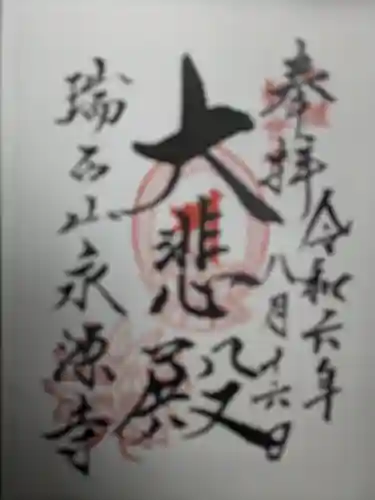 奉拝 令和六年
八月十六日
大悲殿
瑞石山永源寺